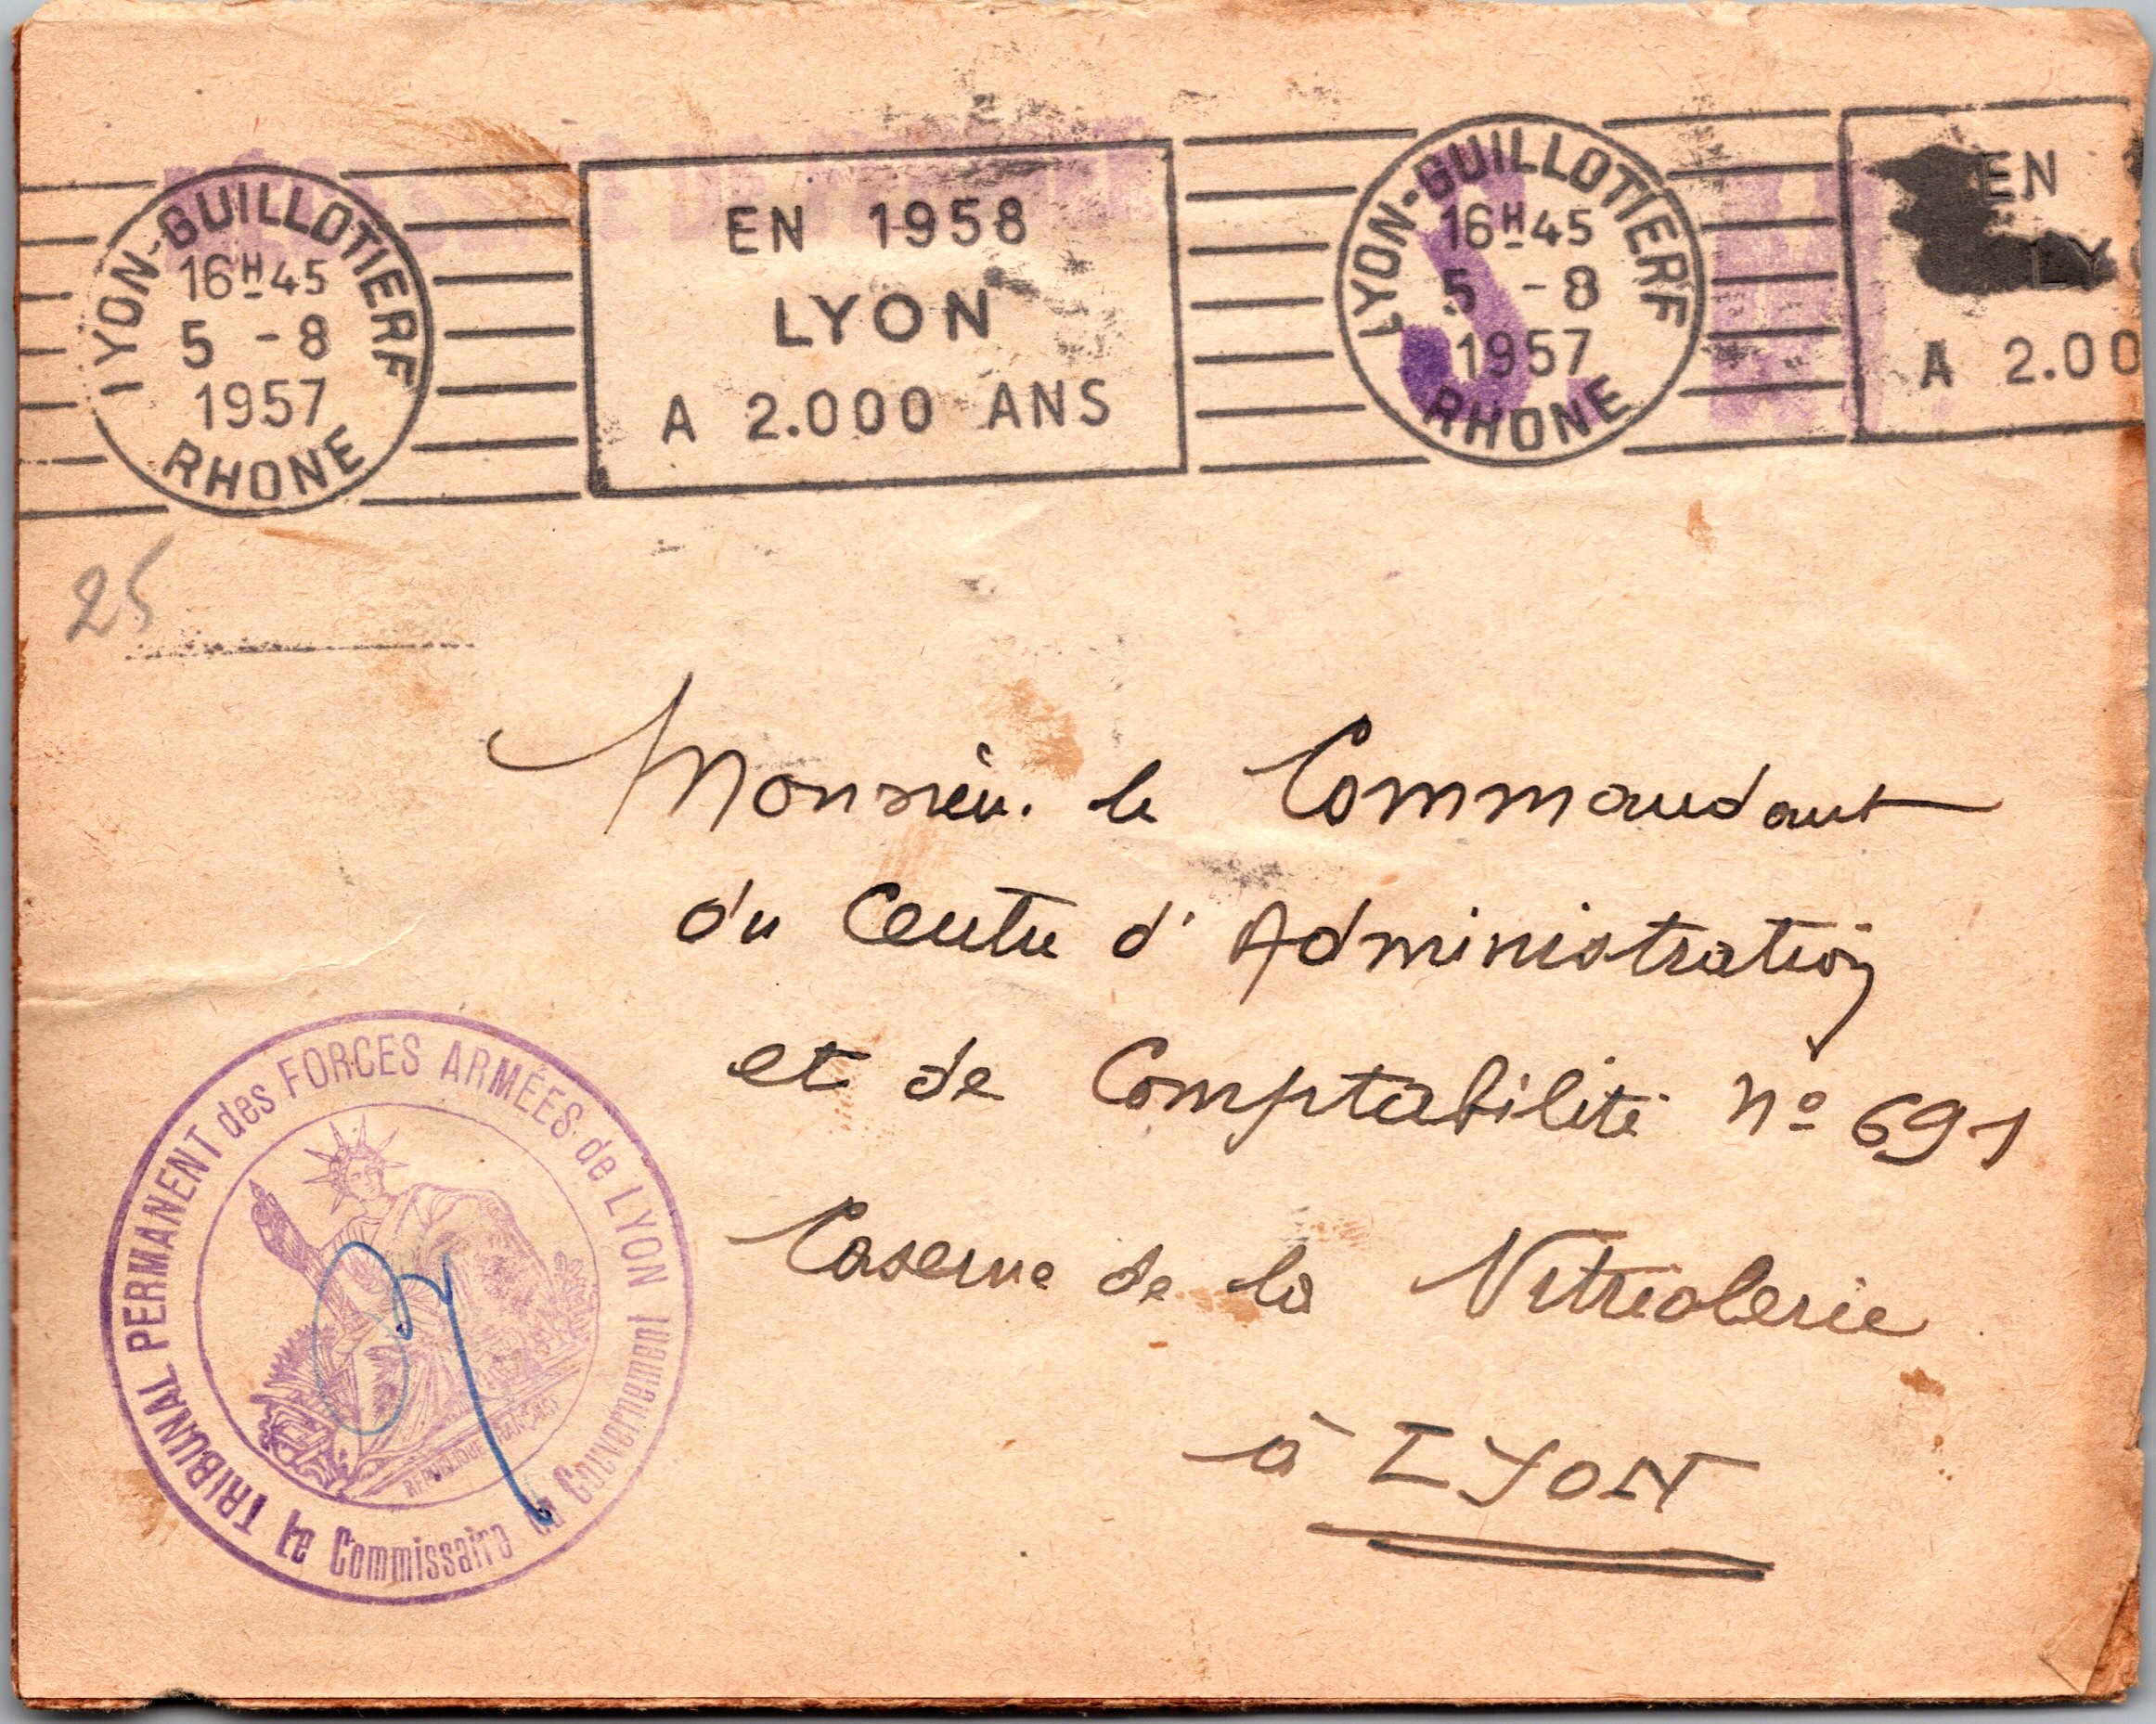 LYON-GUILLOTIERE
16H45
5 -8
1957
RHONE
EN 1958
LYON
A 2.000 ANS
LYON-GUILLOTIERE
16H45
5 -8
1957
RHONE
EN
LY
A 2.00
S. M.
25
Monsieur le Commandant
du Centre d'Administration
et de Comptabilité n° 691
Caserne de la Vitriolerie
à LYON
TRIBUNAL PERMANENT des FORCES ARMÉES de LYON
Le Commissaire du Gouvernement
REPUBLIQUE FRANÇAISE